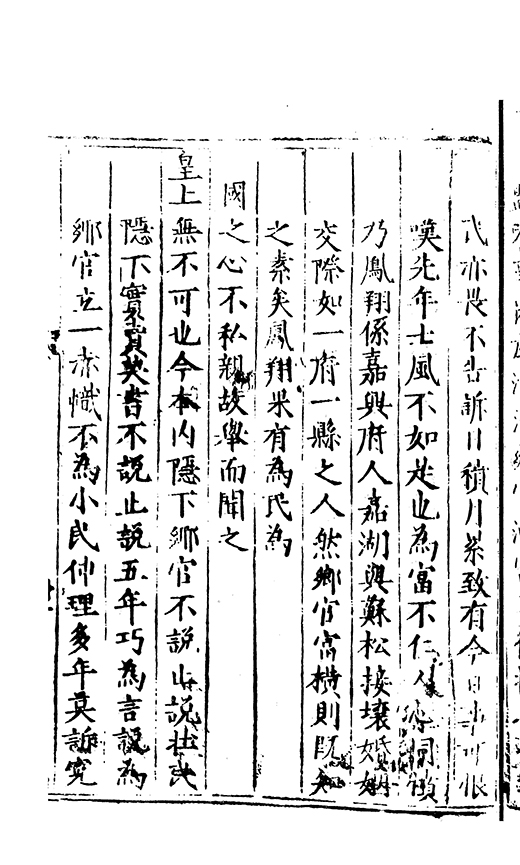 亦畏不告訴日積月累致有今日事可恨
嘆先年士風不如是也為富不仁人
乃鳳翔係嘉興府人嘉湖與蘇松接壤婚姻
交際如一府一縣之人然鄉官富橫則既知
之素矣鳳翔果有為民為
國之心不私親故舉而聞之
皇上無不可也今本內隱下鄉官不說止說壯民
隱下實實契書不說止說五年巧為言說為
鄉官立一赤幟不為小民伸理多年莫訴冤